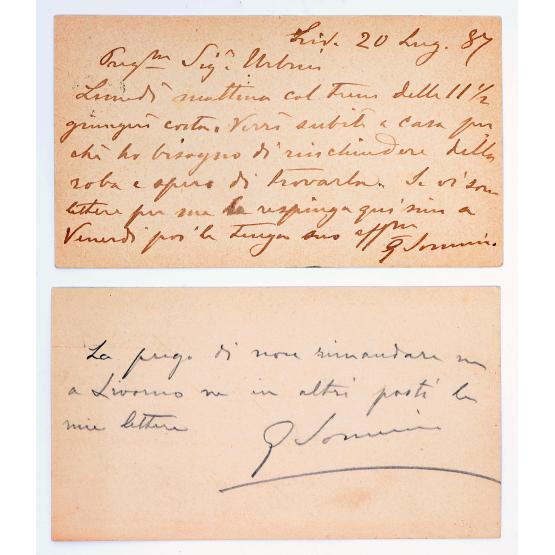 Liv. 20 Lug. 87
Preg.m Sig.r Urbini
Lunedì mattina col treno delle 11 1/2
giungerò costà. Verrò subito a casa per
chè ho bisogno di rinchiudere della
roba e spero di trovarla. Se vi son
lettere per me le respinga qui sino a
Venerdì poi le tenga suo affmo
G Sommi
La prego di non rimandare ne
a Livorno ne in altri posti le
mie lettere
G Sommi